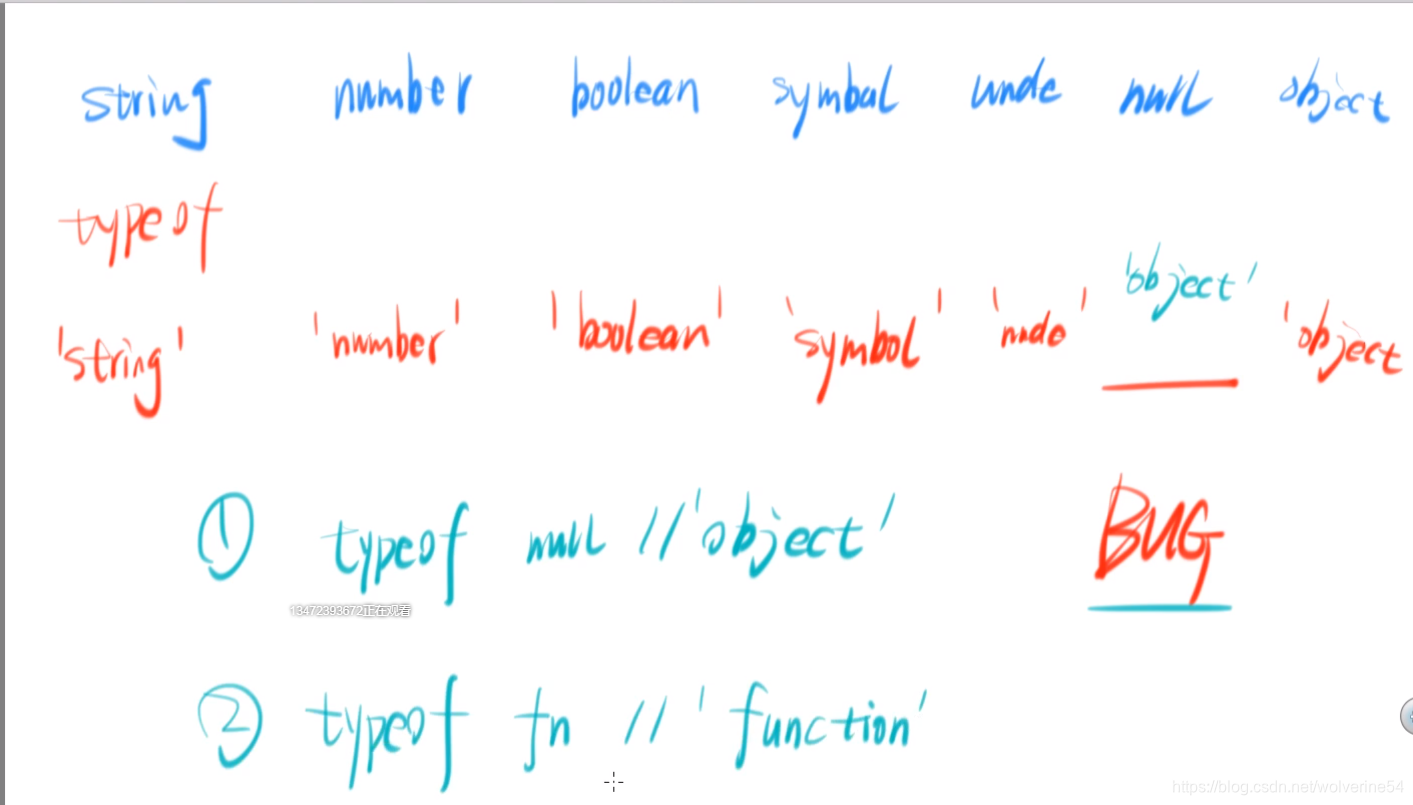 string number boolean symbal unde null object
typeof
'object'
'string' 'number' 'boolean' 'symbol' 'unde' 'object
① typeof null //'object' BUG
13472393672正在观看
② typeof fn // 'function'
https://blog.csdn.net/wolverine54